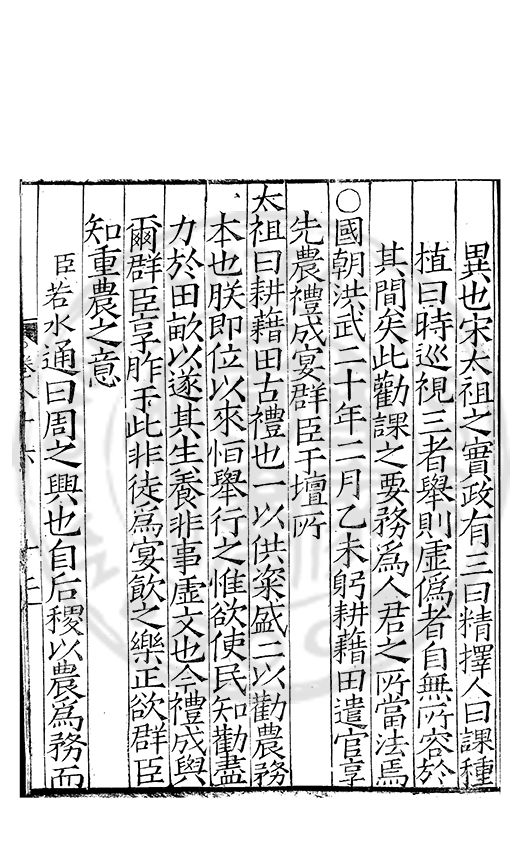 異也宋太祖之實政有三曰精擇人曰課種
植曰時巡視三者舉則虛僞者自無所容於
其間矣此勸課之要務爲人君之所當法焉
○國朝洪武二十年二月乙未躬耕藉田遣官享
先農禮成宴群臣于壇所
太祖曰耕藉田古禮也一以供粢盛二以勸農務
本也朕即位以來恒舉行之惟欲使民知勸盡
力於田畝以遂其生養非事虛文也今禮成與
爾群臣享胙于此非徒爲宴飲之樂正欲群臣
知重農之意
臣若水通曰周之興也自后稷以農爲務而
卷八十六